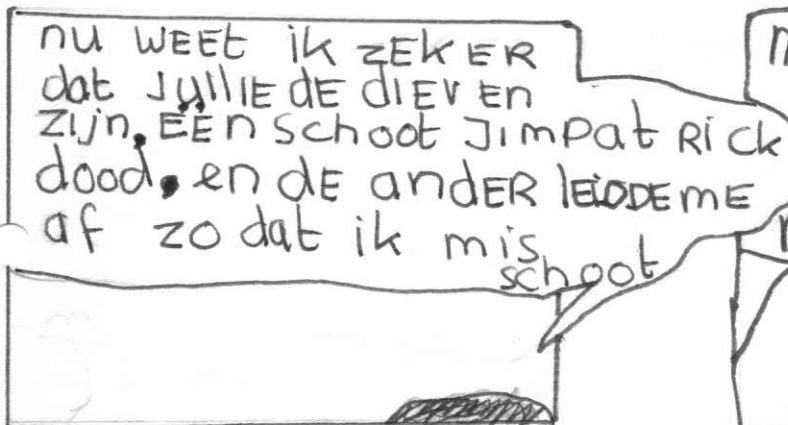 nu WEEt ik ZEKER
dat JULLIE dE diEVEN
ZIJn. EEn Schoot JimPatRick
dood. en dE andER lEIDDE mE
af zodat ik mis
schoot